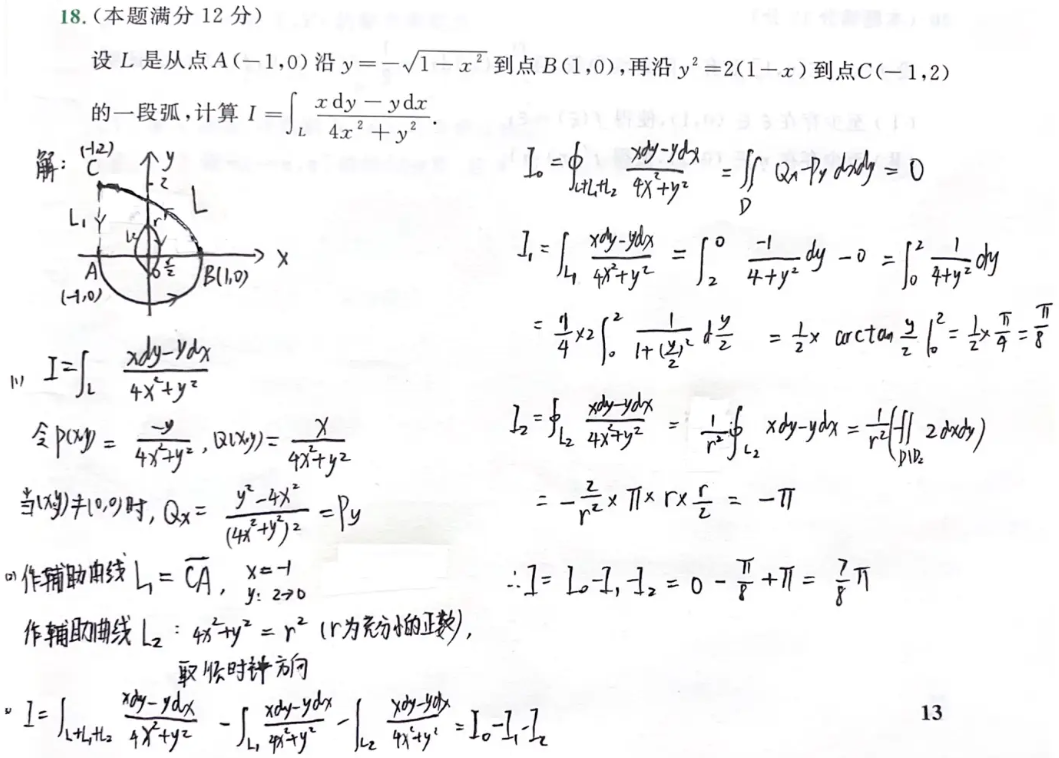 18.(本题满分 12 分)
设 L 是从点A(-1,0)沿 y=-√(1-x²) 到点B(1,0),再沿 y²=2(1-x)到点C(-1,2)
的一段弧,计算 I=∫_L (xdy-ydx)/(4x²+y²).
解:
(-1,2)
C
y
2
L
L₁
L₂
r
r/2
x
A
(-1,0)
0
B(1,0)
(1) I=∫_L (xdy-ydx)/(4x²+y²)
令P(x,y)= -y/(4x²+y²), Q(x,y)= x/(4x²+y²)
当(x,y)≠(0,0)时, Qx= (y²-4x²)/(4x²+y²)² =Py
(2) 作辅助曲线 L₁= CA, x=-1 y: 2→0
作辅助曲线 L₂: 4x²+y²=r² (r为充分小的正数),
取顺时针方向
I=∫_{L+L₁+L₂} (xdy-ydx)/(4x²+y²) -∫_{L₁} (xdy-ydx)/(4x²+y²) -∫_{L₂} (xdy-ydx)/(4x²+y²) =I₀-I₁-I₂
I₀=∮_{L+L₁+L₂} (xdy-ydx)/(4x²+y²) =∬_D Qx-Py dxdy=0
I₁=∫_{L₁} (xdy-ydx)/(4x²+y²) =∫₂⁰ -1/(4+y²) dy -0 =∫₀² 1/(4+y²) dy
= 1/4 ×2∫₀² 1/(1+(y/2)²) d y/2 = 1/2 × arctan y/2 |₀² = 1/2 × π/4 = π/8
I₂=∮_{L₂} (xdy-ydx)/(4x²+y²) = 1/r² ∮_{L₂} xdy-ydx = 1/r² (-∬_{D₂} 2dxdy)
= - 2/r² × π × r × r/2 = -π
∴I=I₀-I₁-I₂=0- π/8 +π= 7/8 π
13